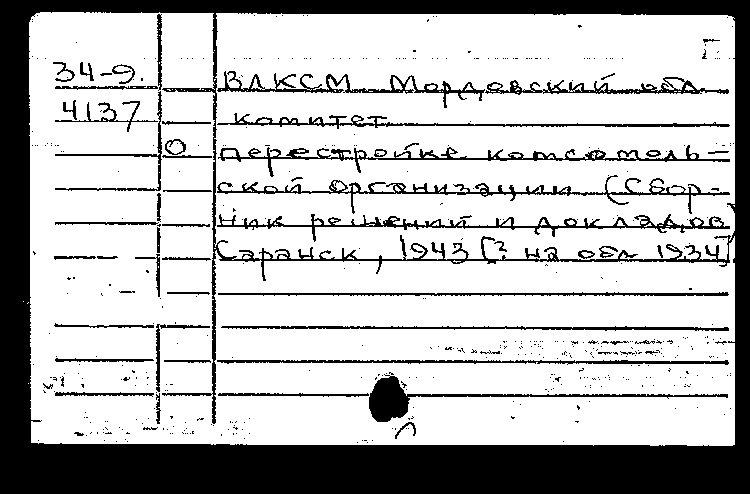 Г
34-9. ВЛКСМ Мордовский обл
4137 комитет
О перестройке комсомоль=
ской организации (Сбор=
ник решений и докладов)
Саранск, 1943 [? на обл 1934]